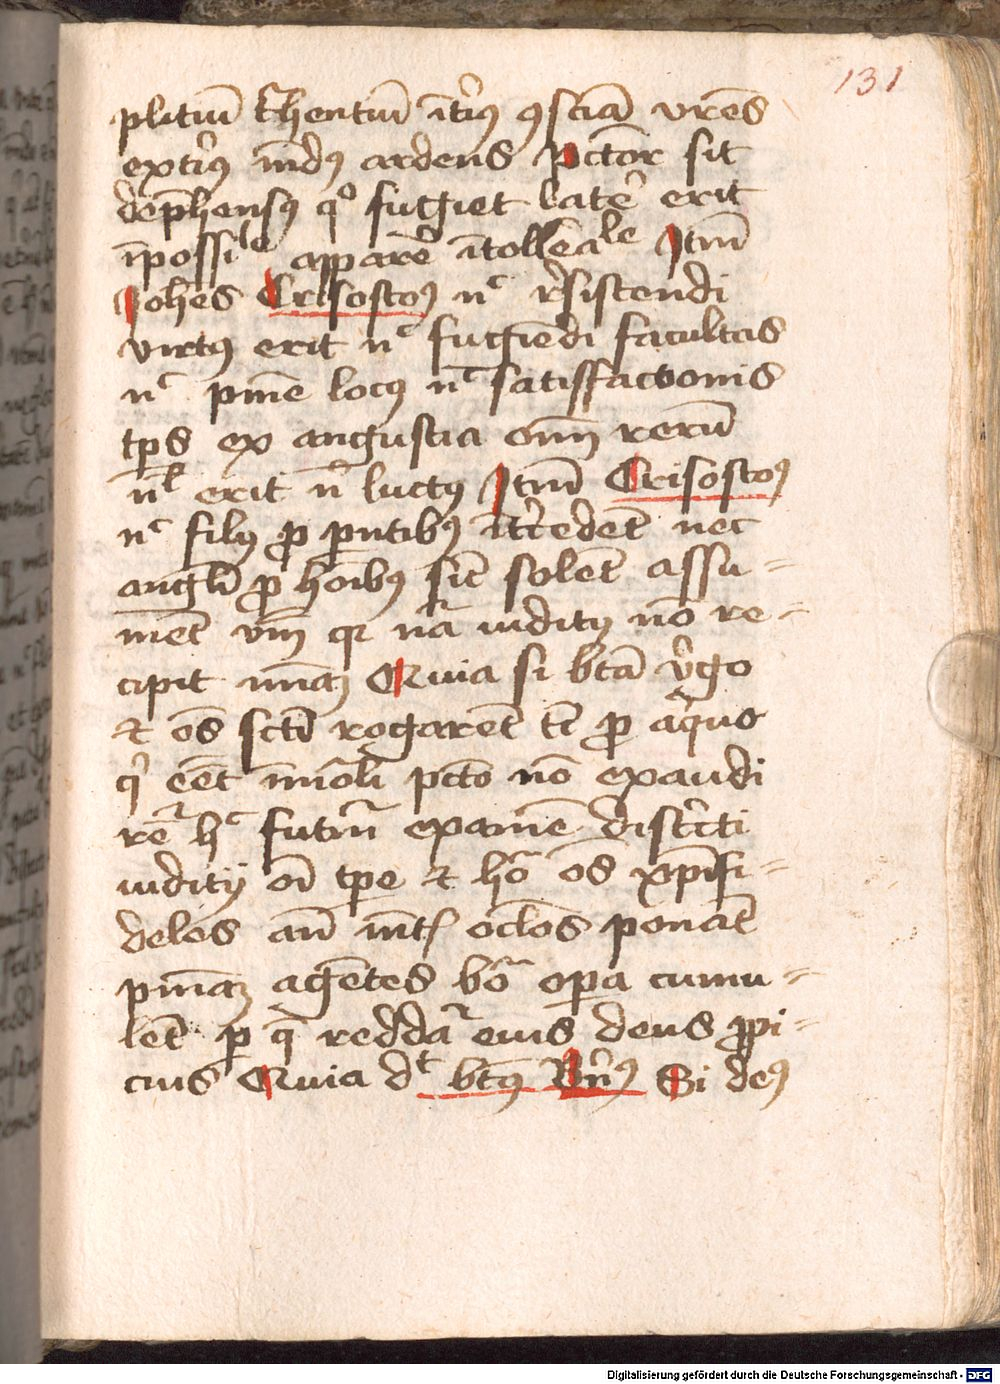 131
plitiu̅ trahentiu̅ it̅i9 9scia̅ vre̅s
ext̅i9 mu̅d9 ardens Pcto̅r sit
dep̅hens9 q° fugiet late̅ erit
i̅possile appare̅ i̅tolle̅ale Itm̅
Joh̅es Crisosto9 nc r̅sistendi
virt9 erit nc fugie̅di facultas
nc pn̅ie loc9 nc satisfactionis
tp̅s ex angustia om̅ reru̅
nl̅ erit ni̅ luct9 Itm̅ Crisosto9
nc filij p̅ p̅ntib9 i̅t̅cedet̅ nec
angl̅i p̅ ho̅ib9 sic̅ sole̅t assu=
me̅t vn̅ qr na̅ iudiciu̅ no̅ re=
cipit nn̅iaʒ Quia si bt̅a v̅go
et os̅ sct̅i rogaret̅ tc̅ p̅ aliquo
q̅ ee̅t i̅ mo̅li pct̅o no̅ exaudi
re̅ hc futuru̅ exame̅ discrcti
iudicij oi̅ tp̅e et ho̅ os̅ xp̅ifi=
deles an̅ me̅tʃ oclo̅s ponat̅
pn̅iaʒ age̅tes bo̅ opa cumu=
let̅ p q̅ redda̅ eius deus ppi=
cius Quia dt bt̅9 Bn̅9 Si de9
Digitalisierung gefördert durch die Deutsche Forschungsgemeinschaft - DFG